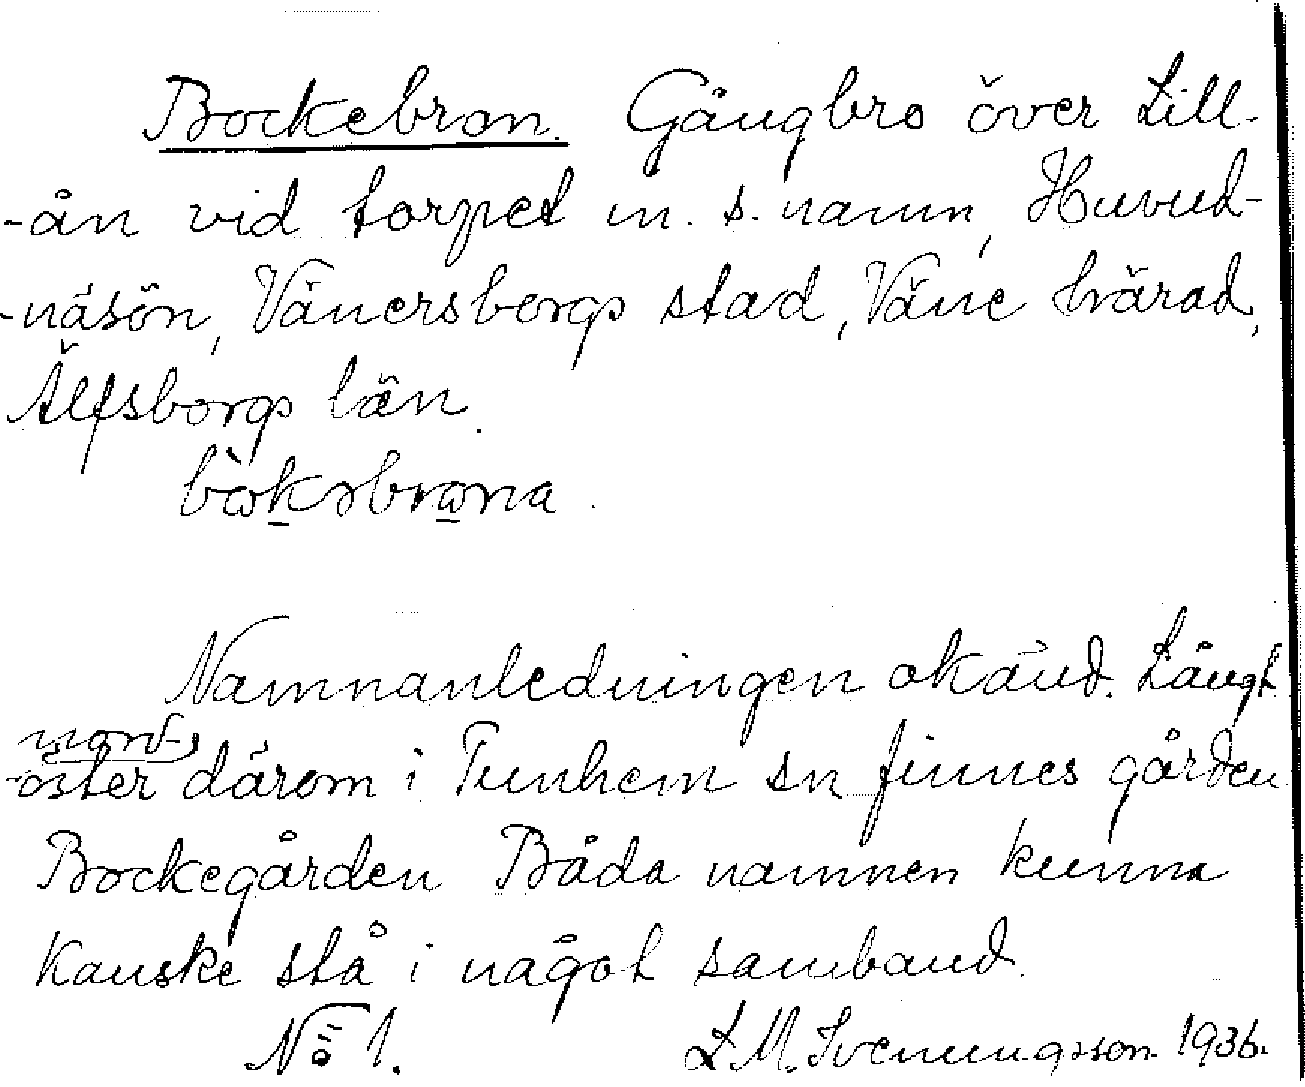 Bockebron. Gångbro över Lill-
-ån vid torpet m. s. namn, Huvud-
-näsön, Vänersborgs stad, Väne härad,
Älfsborgs län.
Namnanledningen okänd. Långt
nord-
-öster därom i Tunhem sn finnes gården
Bockegården Båda namnen kunna
kanske stå i något samband.
No 1. L. M. Svenungsson 1936.